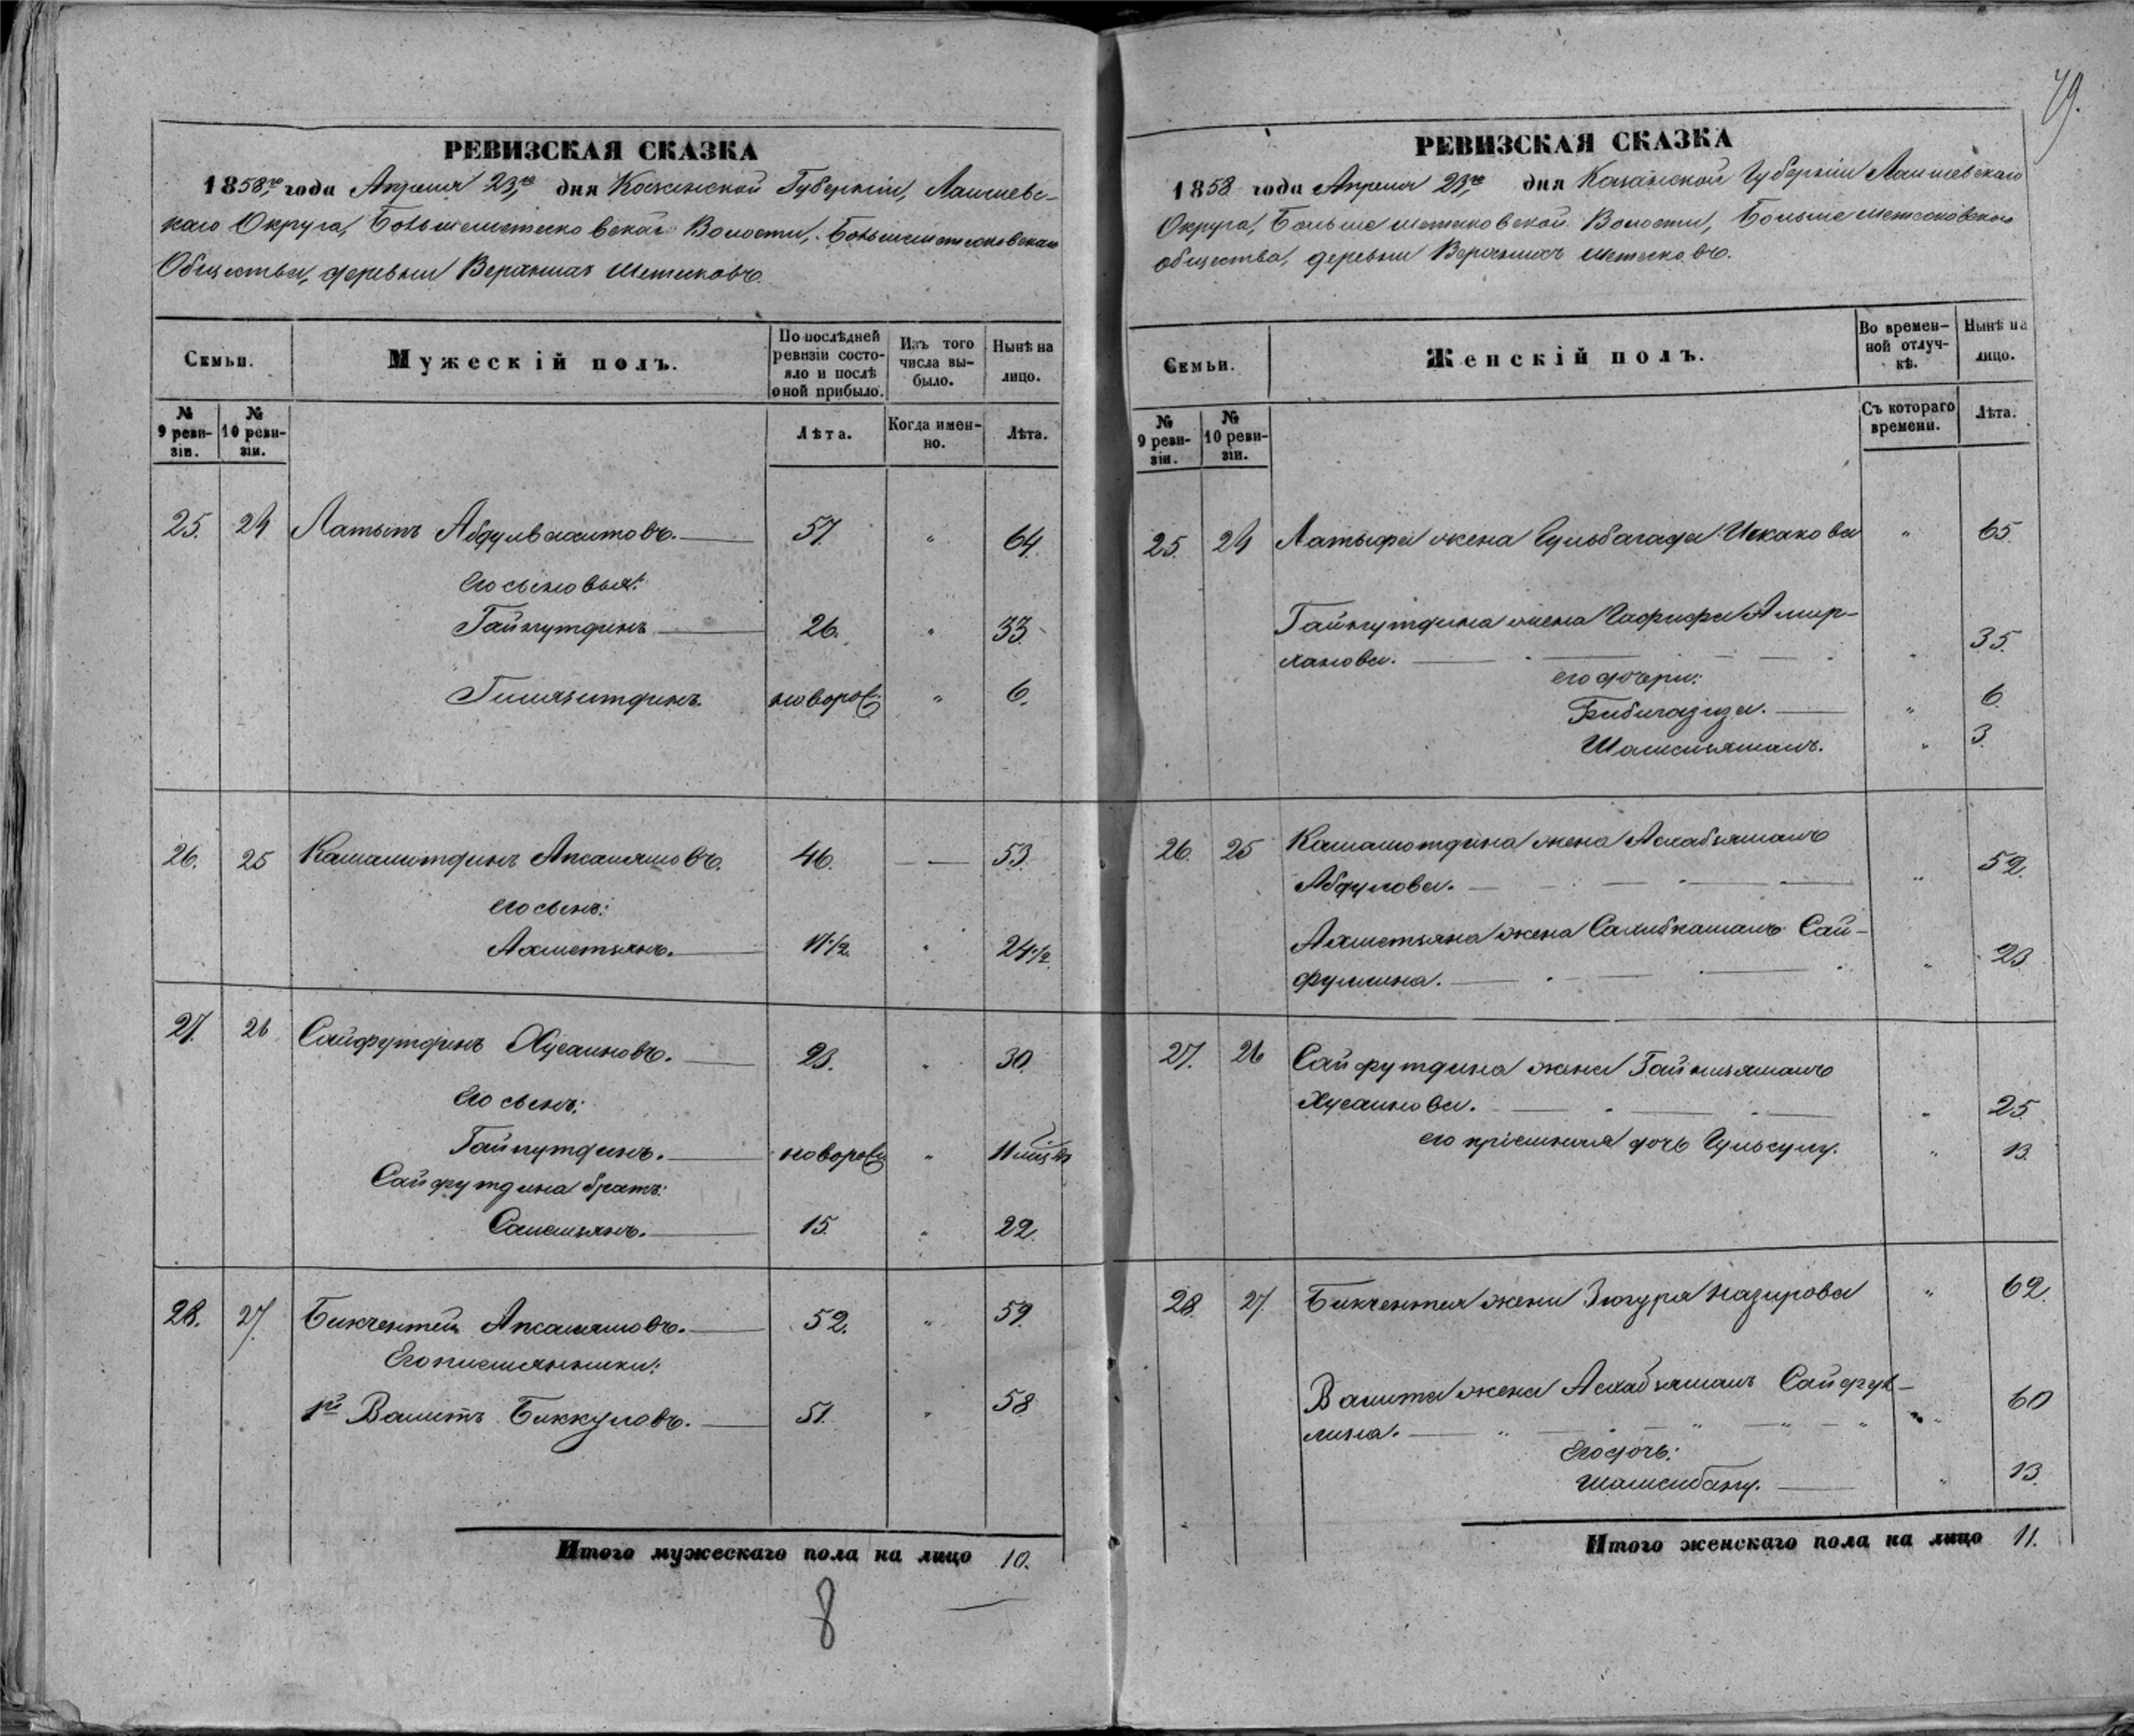 РЕВИЗСКАЯ СКАЗКА
1858го года Апреля 23го дня Казанской Губерніи, Лаишевс-
каго Округа, Большеметесковской Волости, Большеметесковскаго
Общества, деревни Верхнихъ Метесковъ.
Семьи. Мужескій полъ. По послѣдней ревизіи состо-яло и послѣ оной прибыло. Изъ того числа вы-было. Нынѣ на лицо.
№ 9 реви-зіи. № 10 реви-зіи. Лѣта. Когда имен-но. Лѣта.
25. 24 Латыпъ Абдулвахитовъ. 57. " 64.
Его сыновья:
Гайнутдинъ 26. " 33.
Гилязитдинъ. новорож. " 6.
26. 25 Камалютдинъ Апсалямовъ. 46. 53.
его сынъ:
Ахметьянъ. 17 1/2. " 24 1/2.
27. 26 Сайфутдинъ Хусаиновъ. 23. " 30.
Его сынъ:
Гайнутдинъ. новорож " 11 мѣц
Сайфутдина братъ:
Самсиянъ. 15. " 22.
28. 27. Бикчентей Апсалямовъ. 52. " 59.
Его племянники:
1й Валитъ Биккуловъ. 51. " 58.
Итого мужескаго пола на лицо 10.
8
79.
РЕВИЗСКАЯ СКАЗКА
1858 года Апреля 23го дня Казанской Губерніи Лаишевскаго
Округа, Большеметесковской Волости, Большеметесковскаго
общества, деревни Верхнихъ Метесковъ.
Семьи. Женскій полъ. Во времен-ной отлуч-кѣ. Нынѣ на лицо.
№ 9 реви-зіи. № 10 реви-зіи. Съ котораго времени. Лѣта.
25. 24 Латыпа жена Гульбагада Искакова " 65.
Гайнутдина жена Гафифа Амир-
ханова. " 35.
его дочери:
Бибигазиза. " 6.
Шамсиямалъ. " 3.
26. 25 Камалютдина жена Асхабямалъ
Абдулова. " 52.
Ахметьяна жена Сахибкамалъ Сай-
фуллина. " 23
27. 26 Сайфутдина жена Гайниямалъ
Хусаинова. " 25.
его пріемная дочь Гульсулу. " 13.
28. 27. Бикчентея жена Зюгура Назирова " 62.
Валита жена Асхабямалъ Сайфул-
лина. " 60
Его дочь:
Шамсибану. " 13.
Итого женскаго пола на лицо 11.